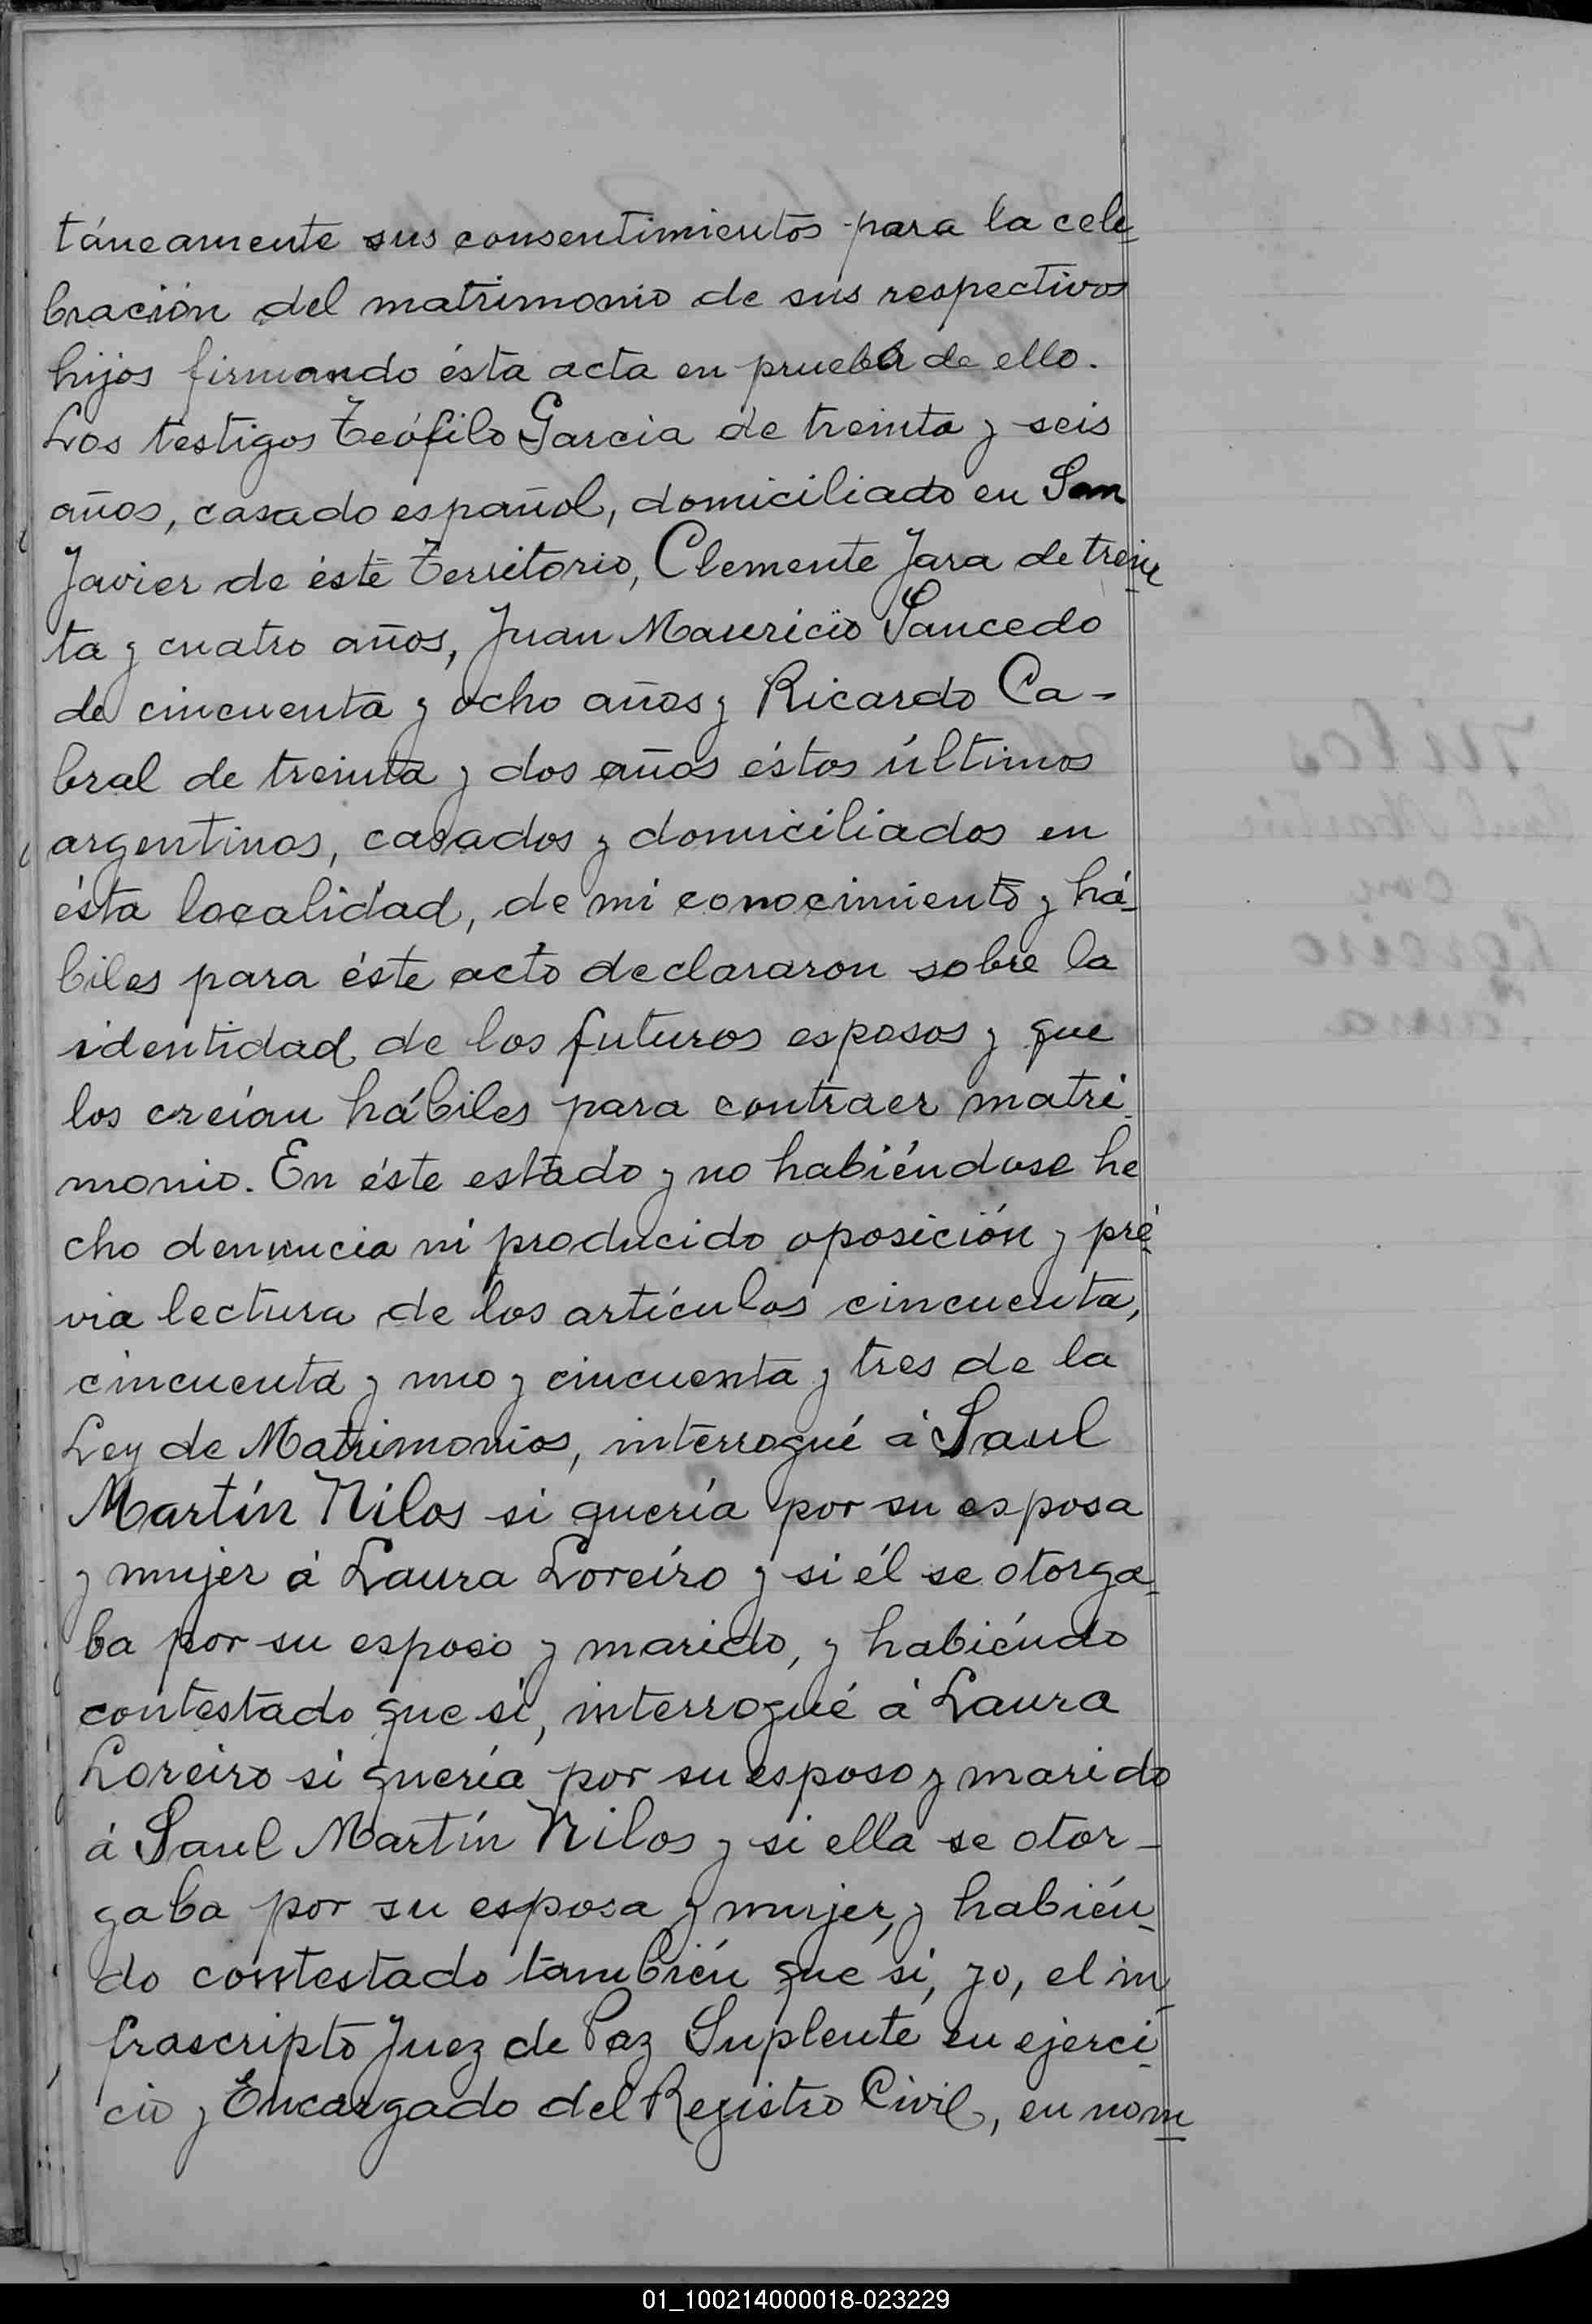 táneamente sus consentimientos para la cele
bración del matrimonio de sus respectivos
hijos firmando ésta acta en prueba de ello.
Los testigos Teófilo Garcia de treinta y seis
años, casado español, domiciliado en San
Javier de éste Territorio, Clemente Jara de trein
ta y cuatro años, Juan Mauricio Saucedo
de cincuenta y ocho años y Ricardo Ca-
bral de treinta y dos años éstos últimos
argentinos, casados y domiciliados en
ésta localidad, de mi conocimiento y há-
biles para éste acto declararon sobre la
identidad de los futuros esposos y que
los creían hábiles para contraer matri-
monio. En éste estado y no habiéndose he
cho denuncia ni producido oposición y pré-
via lectura de los artículos cincuenta,
cincuenta y uno y cincuenta y tres de la
Ley de Matrimonios, interrogué á Saul
Martín Nilos si quería por su esposa
y mujer á Laura Loreiro y si él se otorga-
ba por su esposo y marido, y habiéndo
contestado que si, interrogué á Laura
Loreiro si quería por su esposo y marido
á Saul Martín Nilos y si ella se otor-
gaba por su esposa y mujer, y habién-
do contestado también que si, yo, el in-
frascripto Juez de Paz Suplente en ejerci-
cio y Encargado del Registro Civil, en nom
01_100214000018-023229